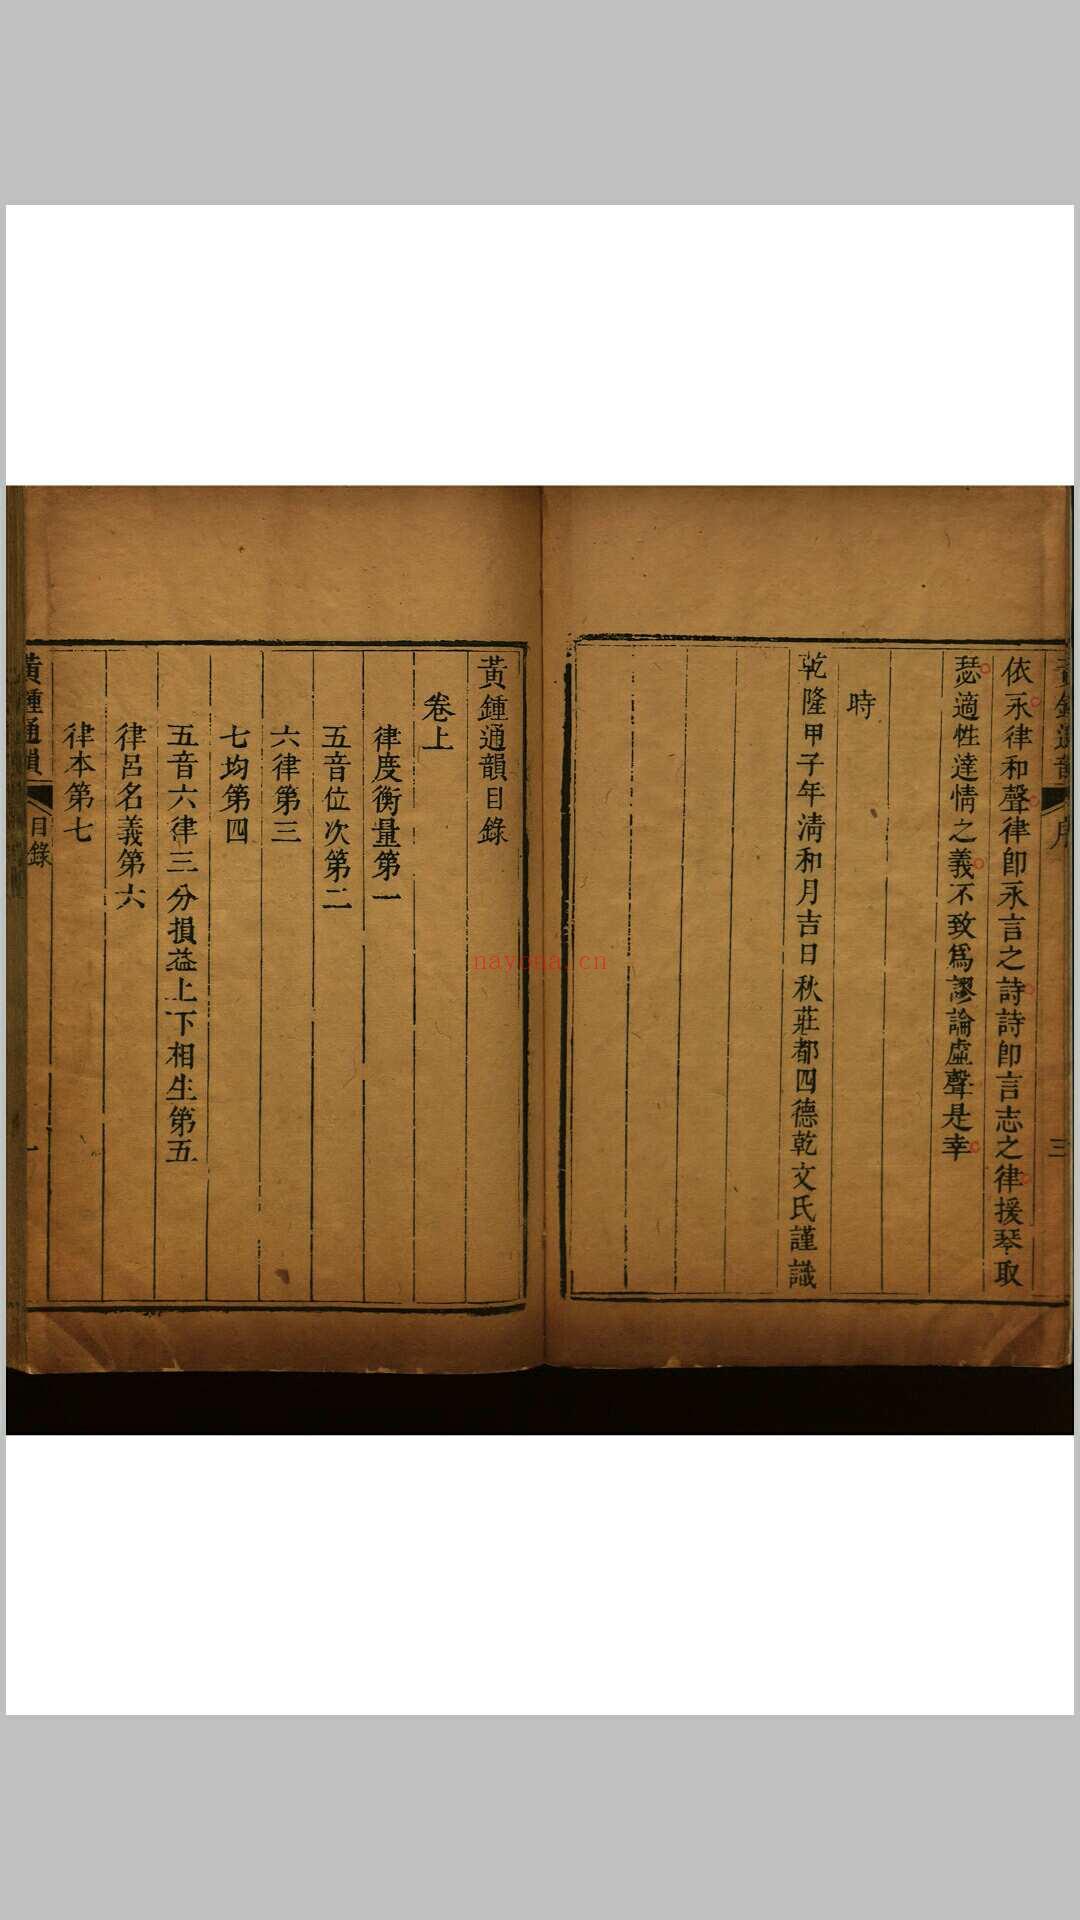 依永律和聲律卽永言之詩詩卽言志之律援琴取
瑟適性達情之義不致爲謬論虛聲是幸
時
乾隆甲子年淸和月吉日秋莊都四德乾文氏謹識
黃鍾通韻目錄
卷上
律度衡量第一
五音位次第二
六律第三
七均第四
五音六律三分損益上下相生第五
律呂名義第六
律本第七
黃鍾通韻
目錄
一
nayona.cn